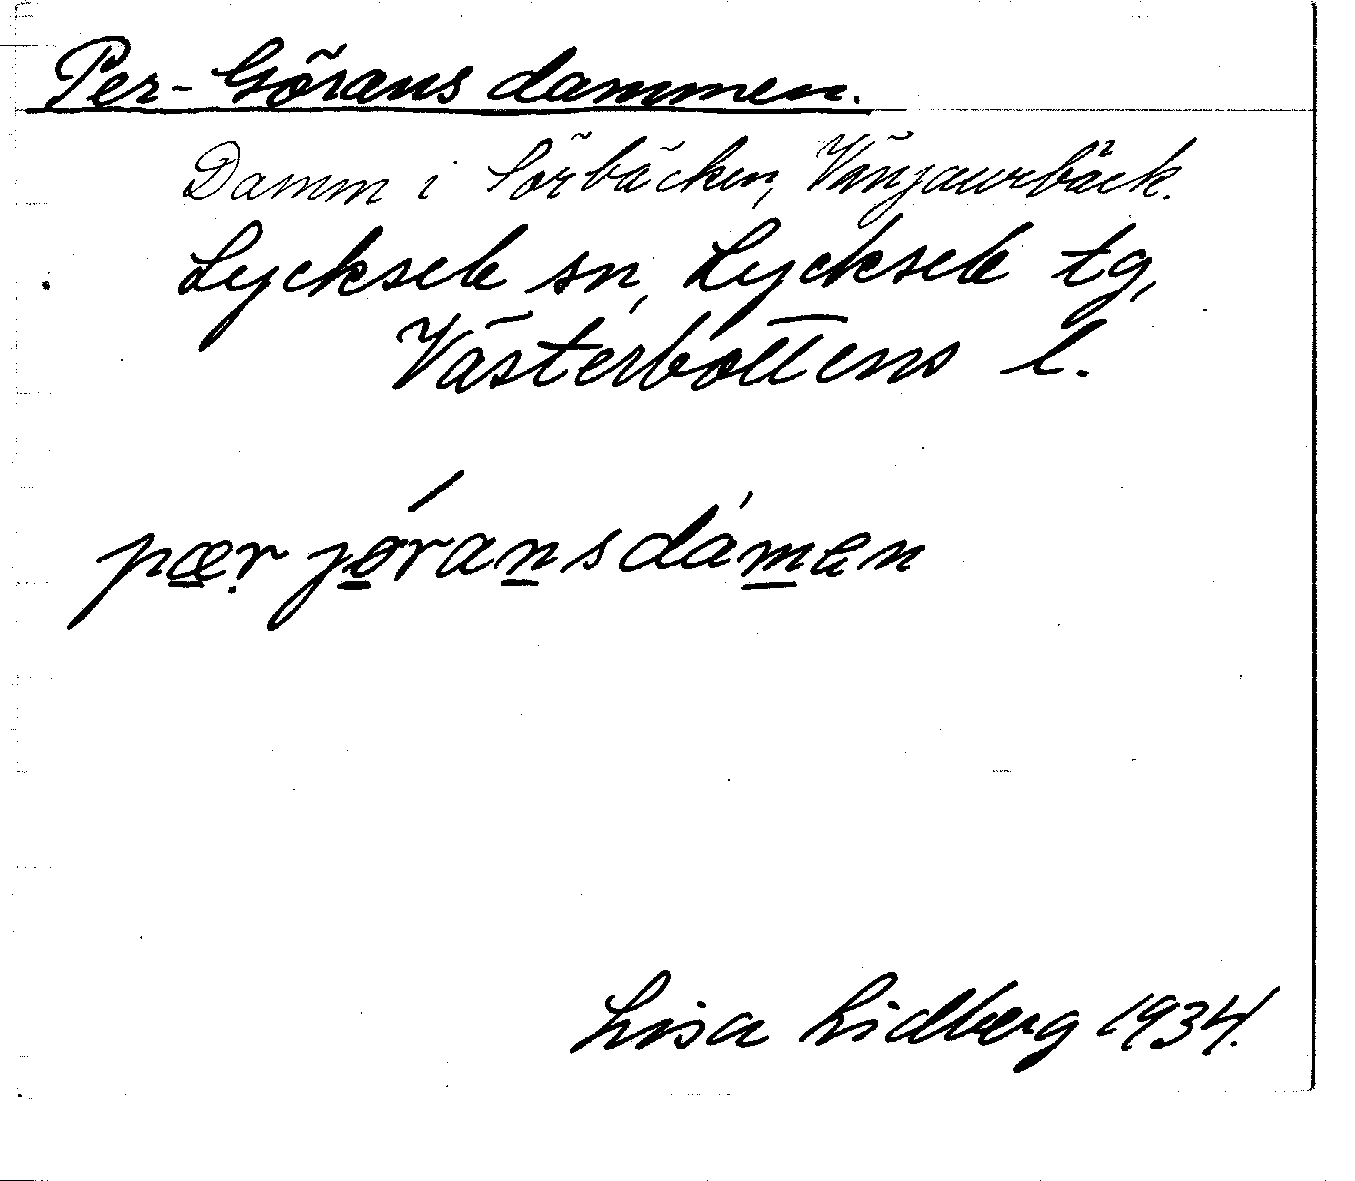 Per-Görans dammen.
Damm i Sörbäcken, Vänjaurbäck.
Lycksele sn, Lycksele tg,
Västerbottens l.
pær jóransdámen
Lisa Lidberg 1934.